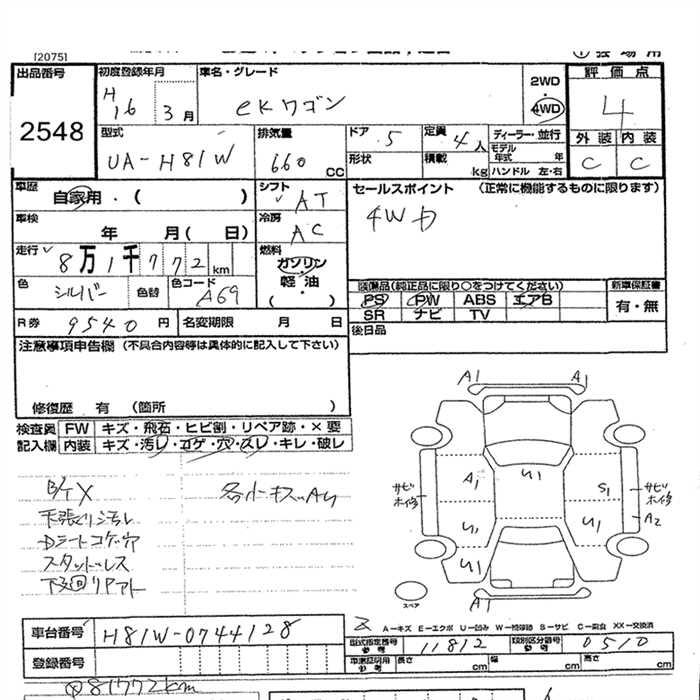 [2075]
出品番号
2548
初度登録年月
H16 3月
車名・グレード
eKワゴン
2WD
・
4WD
評価点
4
外装 内装
C C
型式
UA-H81W
排気量
660 CC
ドア 5
定員 4人
ディーラー・並行
形状
積載 kg
モデル年式 年
ハンドル 左・右
車歴
自家用・( )
シフト
AT
セールスポイント (正常に機能するものに限ります)
4WD
車検
年 月( 日)
冷房
AC
走行
8万1千772km
燃料
ガソリン
軽油
( )
色
シルバー
色替
色コード
A69
装備品(純正品に限り○をつけてください)
PS PW ABS エアB
SR ナビ TV
新車保証書
有・無
R券 9540円
名変期限 月 日
後日品
注意事項申告欄 (不具合内容等は具体的に記入して下さい)
修復歴 有 (箇所 )
検査員 FW キズ・飛石・ヒビ割・リペア跡・×要
記入欄 内装 キズ・汚レ・コゲ・穴・スレ・キレ・破レ
A1 A1
A1 U1 S1
サビ サビ
A2
U1 U1
U1
スペア
A1
各小キズAU
Dシートコゲ穴
スタッドレス
車台番号 H81W-0744128
A-キズ E-エクボ U-凹み W-補修跡 S-サビ C-腐食 XX-交換済
型式指定番号 参考 11812
類別区分番号 参考 0510
登録番号
車庫証明用 参考
長さ cm
幅 cm
高さ cm
81772km